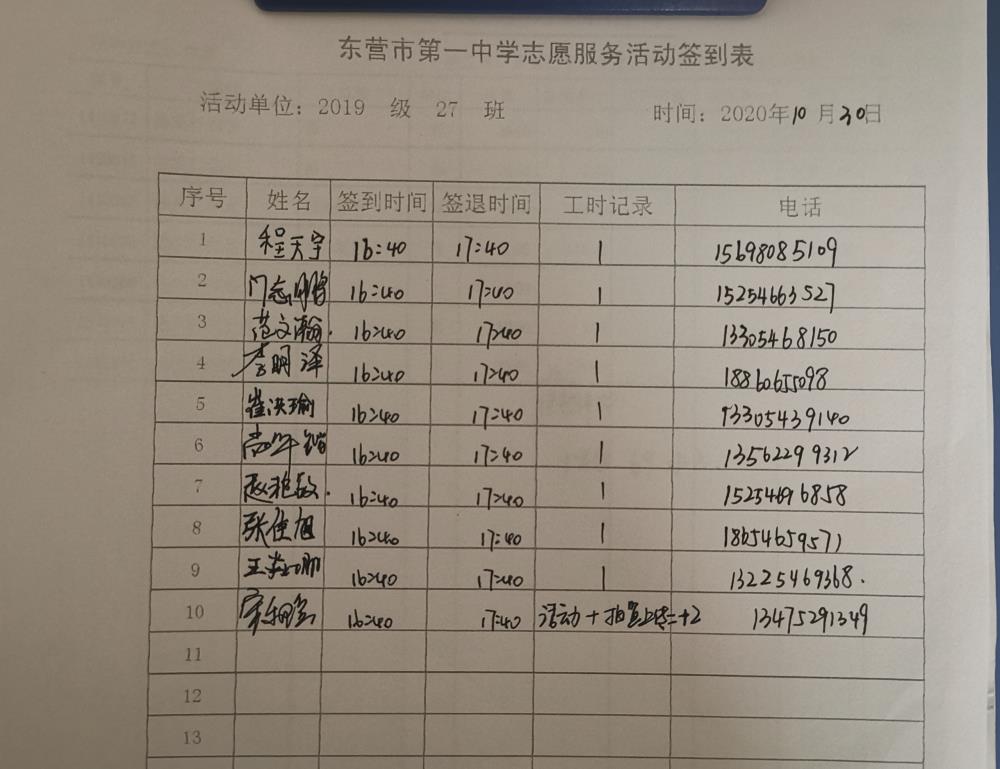 东营市第一中学志愿服务活动签到表
活动单位：2019 级 27 班 时间：2020年10月30日
序号 姓名 签到时间 签退时间 工时记录 电话
1 程天宇 16:40 17:40 1 15698085109
2 门志鹏 16:40 17:40 1 15254663527
3 范文瀚 16:40 17:40 1 13305468150
4 李明泽 16:40 17:40 1 18860655098
5 崔洪瑜 16:40 17:40 1 13305439140
6 16:40 17:40 1 13562299312
7 赵 16:40 17:40 1 15254696858
8 张佳旭 16:40 17:40 1 18654659571
9 王 16:40 17:40 1 13225469368.
10 宋 16:40 17:40 活动+拍照上传=+2 13475291349
11
12
13